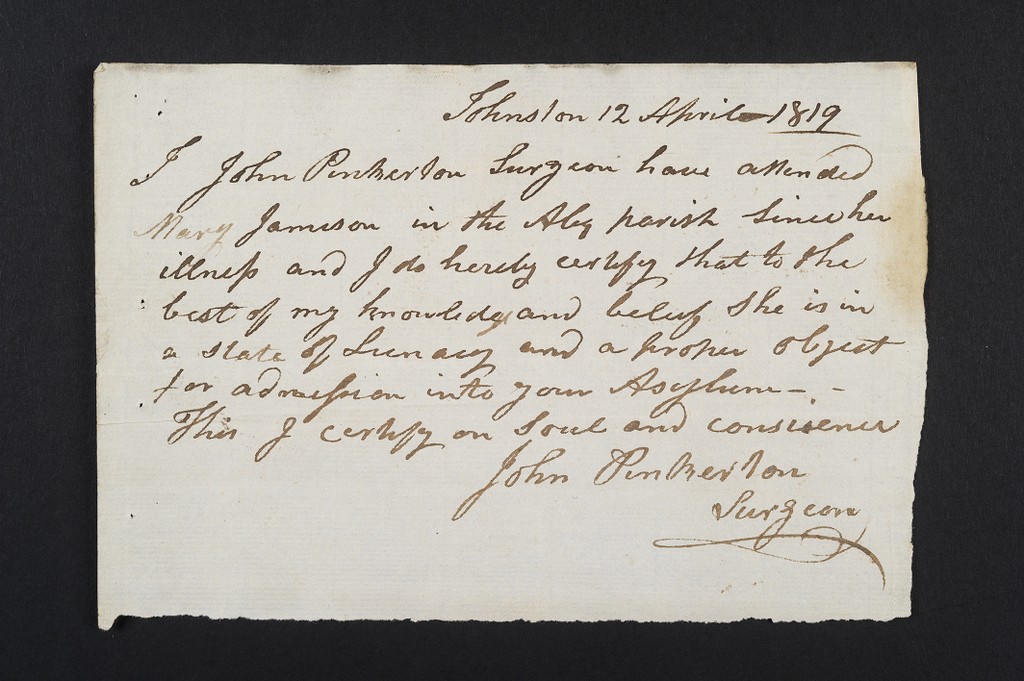 Johnston 12 April 1819
I John Pinkerton Surgeon have attended
Mary Jameson in the Abey parish Since her
illness and I do hereby certify that to the
best of my knowledge and beleif She is in
a state of Lunacy and a proper object
for admission into your Asylum - -
This I certify on Soul and consience
John Pinkerton
Surgeon